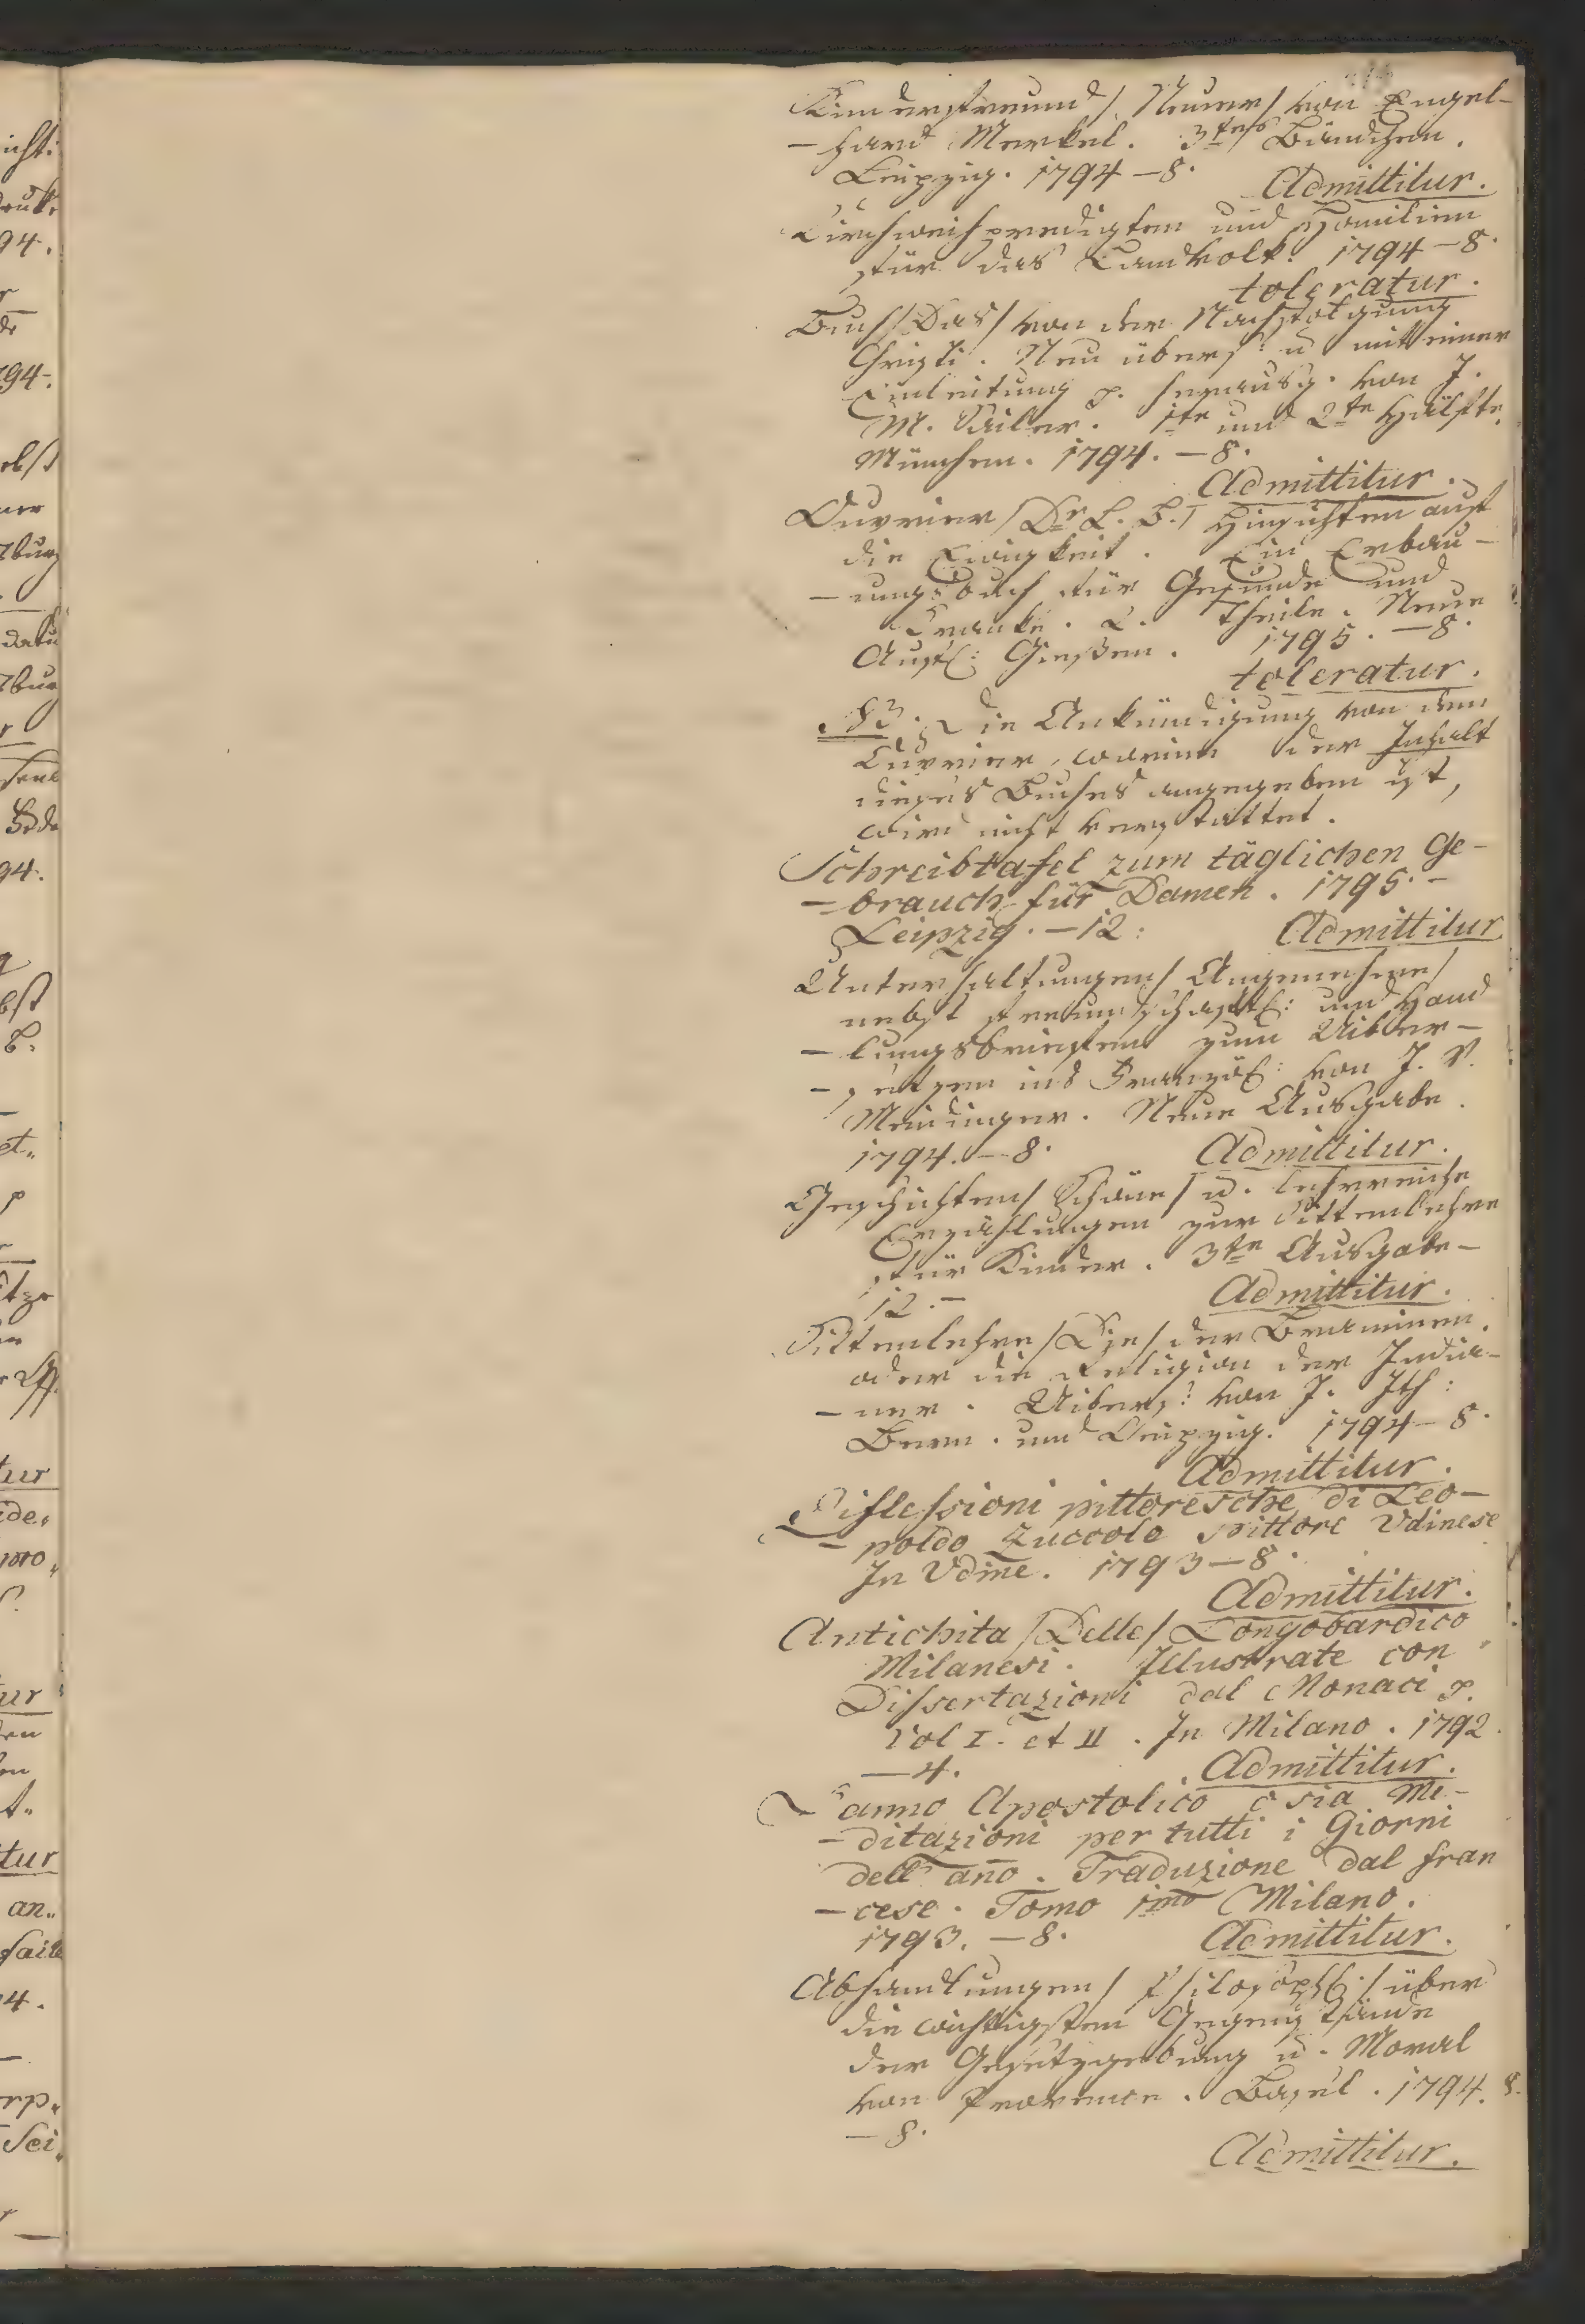 Kinderfreund /: Neuer / von Engel-
-hard Merkel. 3tes Bändchen.
Leipzig. 1794 - 8.
Admittitur.
Kirchweihpredigten und Homilien
für das Landvolk. 1794 - 8.
toleratur.
Buch /Das/ von der Nachfolgung
Christi. Neu übers: u mit einer
Einleitung p. herausg. von J.
M. Sailer. 1te und 2te Hälfte.
München. 1794. - 8.
Admittitur.
Ouvrier /Dr L. B./ Hinsichten auf
die Ewigkeit. Ein Erbau-
-ungsbuch für Gesunde und
Kranke. 2. Theile. Neue
Aufl: Gießen. 1795. - 8.
toleratur.
NB. Die Ankündigung von dem
Ouvrier, worinn der Inhalt
dieses Buches angegeben ist,
wird nicht verstattet.
Schreibtafel zum täglichen Ge-
-brauch für Damen. 1795. -
Leipzig. - 12:
Admittitur
Unterhaltungen / Angenehme /
nebst freundschaftl: und Hand
-lungsbriefen zum Uiber-
-setzen ins Französ: von J. V.
Meidinger. Neue Ausgabe.
1794. - 8.
Admittitur.
Geschichten / Schöne / u. lehrreiche
Erzählungen zur Sittenlehre
für Kinder. 3te Ausgabe -
12. -
Admittitur.
Sittenlehre /Die/ der Braminen.
oder die Religion der India-
-ner. Uibers: von J. Ith:
Bern. und Leipzig. 1794 - 8.
Admittitur.
Riflessioni pittoresche di Leo-
-poldo Zuccolo Pittore Udinese
In Udine. 1793 - 8.
Admittitur.
Antichita /Delle/ Longobardico
Milanesi. Illustrate con
Dissertazioni dal Monaci p.
Vol I. et II. In Milano. 1792.
- 4.
Admittitur.
L'anno Apostolico o sia Me-
-ditazioni per tutti i Giorni
dell' año. Traduzione dal fran
-cese. Tomo 1mo Milano.
1793. - 8.
Admittitur.
Abhandlungen / Philosoph: / über
die wichtigsten Gegenstände
der Gesetzgebung u. Moral
von Provence. Basel. 1794. 8.
- 8.
Admittitur.